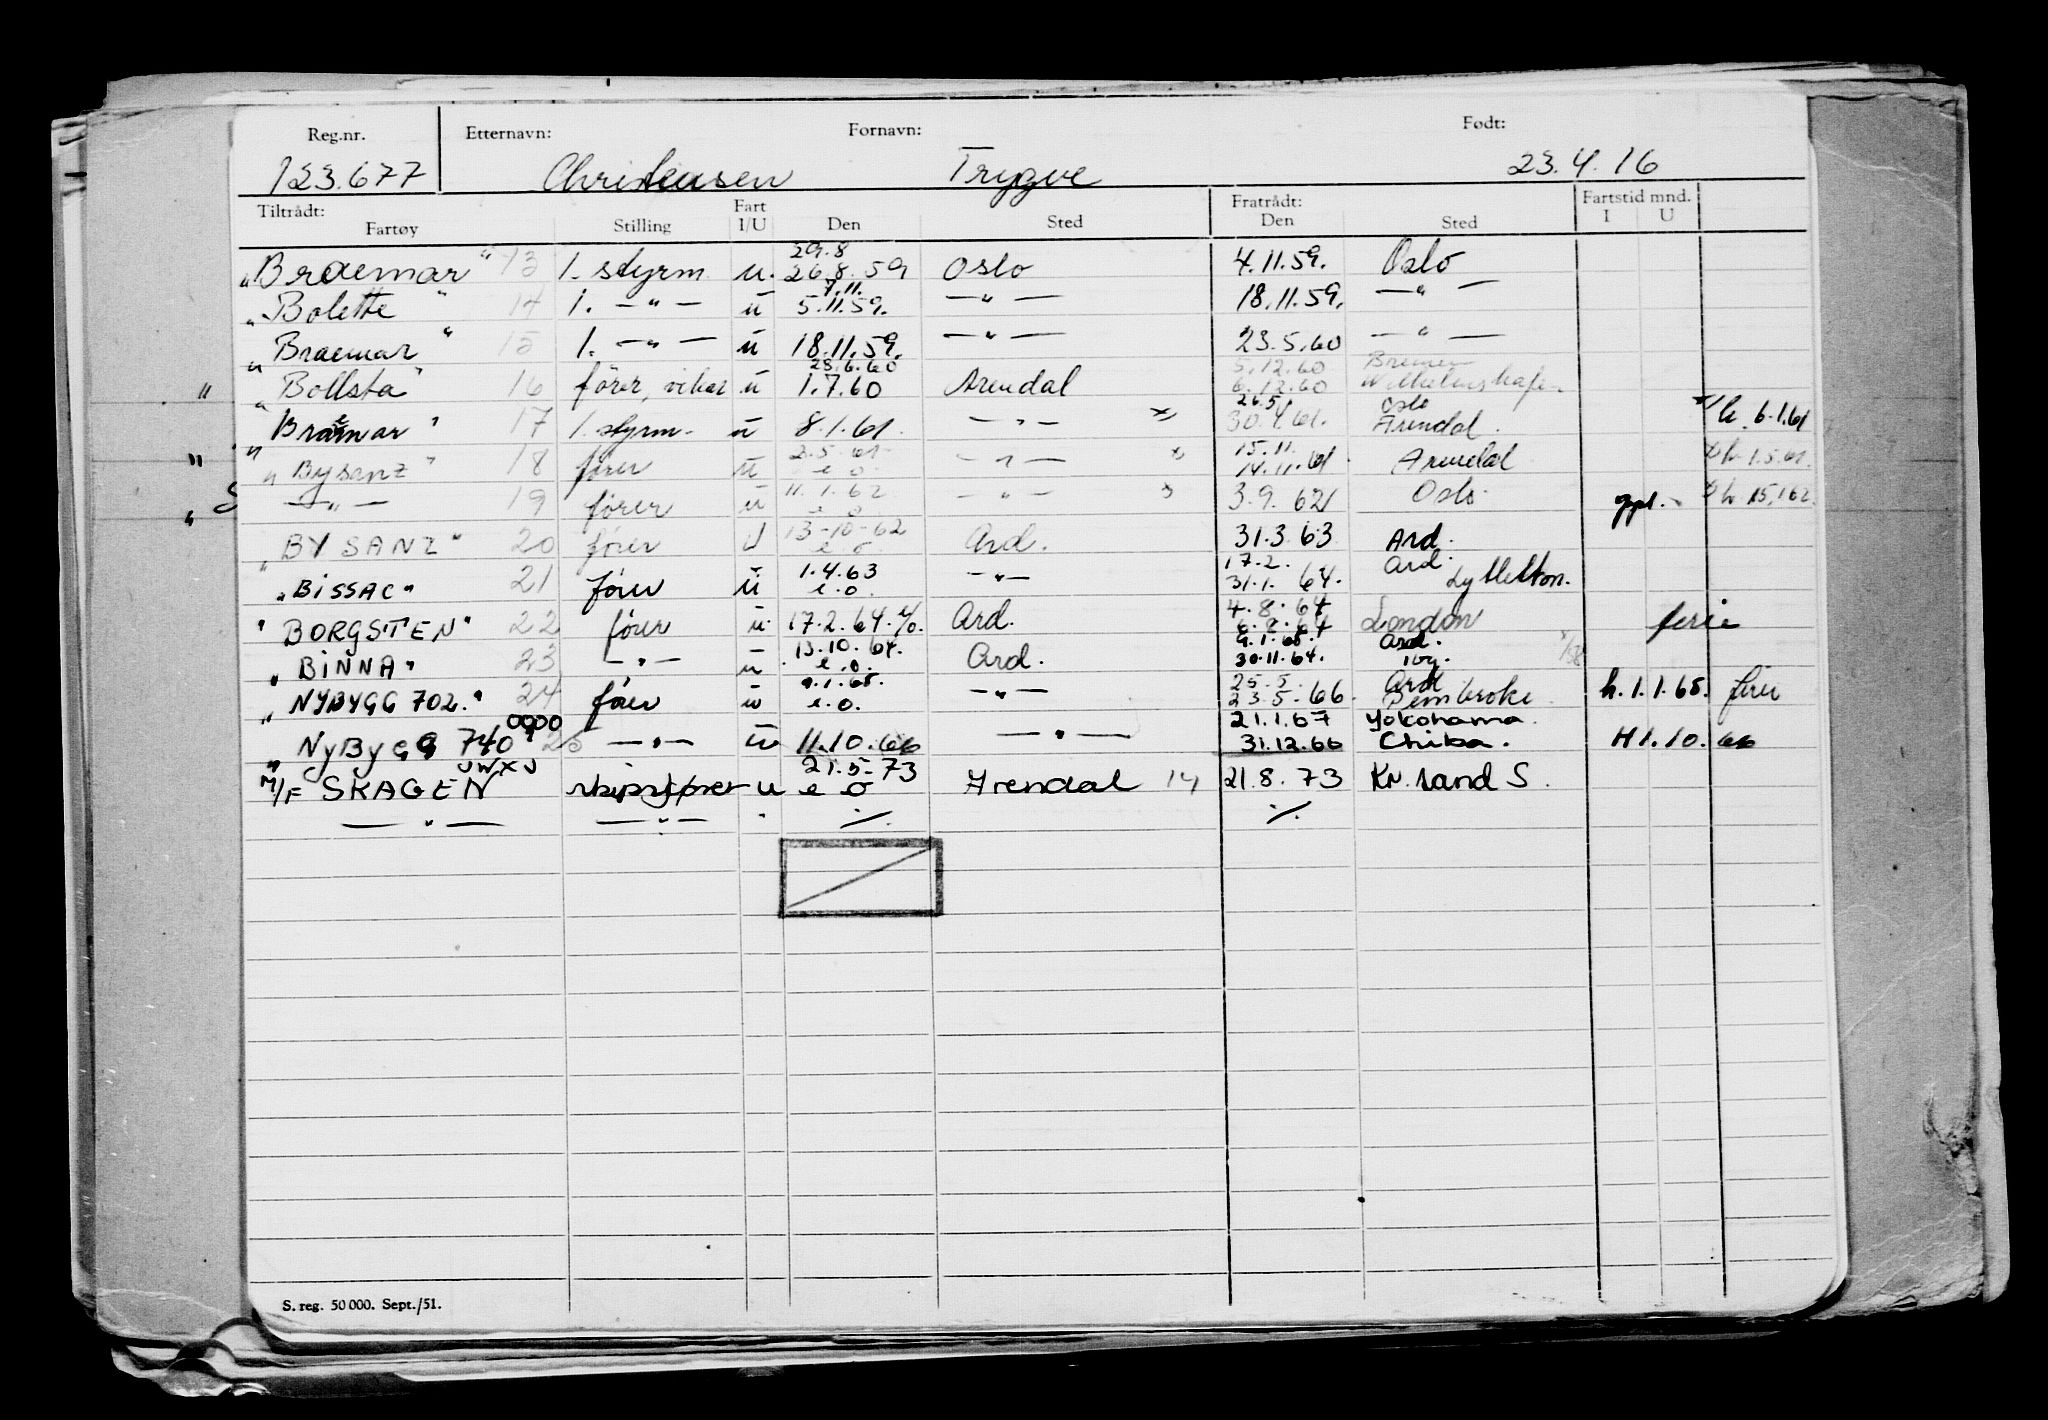 Reg.nr. Etternavn: Fornavn: Født:
123.677 Christensen Trygve 23.4.16
Tiltrådt: Fart Fratrådt: Fartstid mnd.
Fartøy Stilling I/U Den Sted Den Sted I U
29.8
"Braemar" 13 1. styrm. u. 26.8.59 Oslo 4.11.59. Oslo
7.11.
"Bolette" 14 1. — " — u 5.11.59. — " — 18.11.59. — " —
"Braemar" 15 1. — " — u 18.11.59. — " — 23.5.60 — " —
28.6.60 5.12.60 Bremen
"Bollsta" 16 fører, vikar u 1.7.60 Arendal 6.12.60 Wilhelmshafen
26.5 Oslo
"Braemar" 17 1. styrm. u 8.1.61. — " — x) 30.4.61. Arendal. x) h. 6.1.61
2.5.61 15.11.
"Bysanz" 18 fører u e.o. — " — x) 14.11.61 Arendal x) h. 1.5.61.
11.1.62
— " — 19 fører u e.o. — " — x) 3.9.62 Oslo. x) h. 15.1.62.
13-10-62
"BYSANZ" 20 fører U e.o. Ard. 31.3.63 Ard.
1.4.63 17.2. Ard.
"BISSAC" 21 fører u e.o. — " — 31.1.64. Lyttelton.
4.8.64
"BORGSTEN" 22 fører u 17.2.64. Ard. London ferie
13.10.64. 9.1.65. Ard.
"BINNA" 23 — " — u e.o. Ard. 30.11.64.
9.1.65. 25.5. Ard
"NYBYGG 702." 24 fører u e.o. — " — 23.5.66. Pembroke h. 1.1.65.
21.1.67 Yokohama.
"NyByGG 740" 25 — " — u 11.10.66 — " — 31.12.66 Chiba. H 1.10.66
JWXJ 21.5-73
M/F SKAGEN skipsfører u e o Arendal 14 21.8.73 Kr. sand S.
— " — — " — " ./. ./.
S. reg. 50 000. Sept./51.